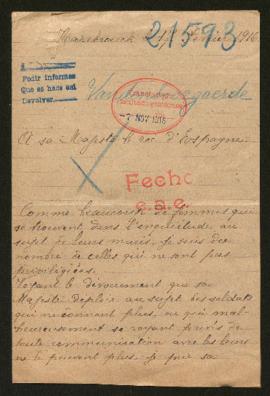 21593
1916
Pedir informes
Que es hace est
Devolver.
7 NOV 1916
A sa Majesté le roi d'Espagne.
Fecho
e.a.e.
Comme beaucoup de femmes qui
se trouvent dans l'inquiétude au
sujet de leurs maris, je suis du
nombre de celles qui ne sont pas
privilégiées.
Voyant le dévouement que sa
Majesté déploie au sujet des soldats
qui n'écrivent plus, ou qui mal-
heureusement se voyant privés de
toute communication avec les leurs
ne le peuvent plus. Je prie sa